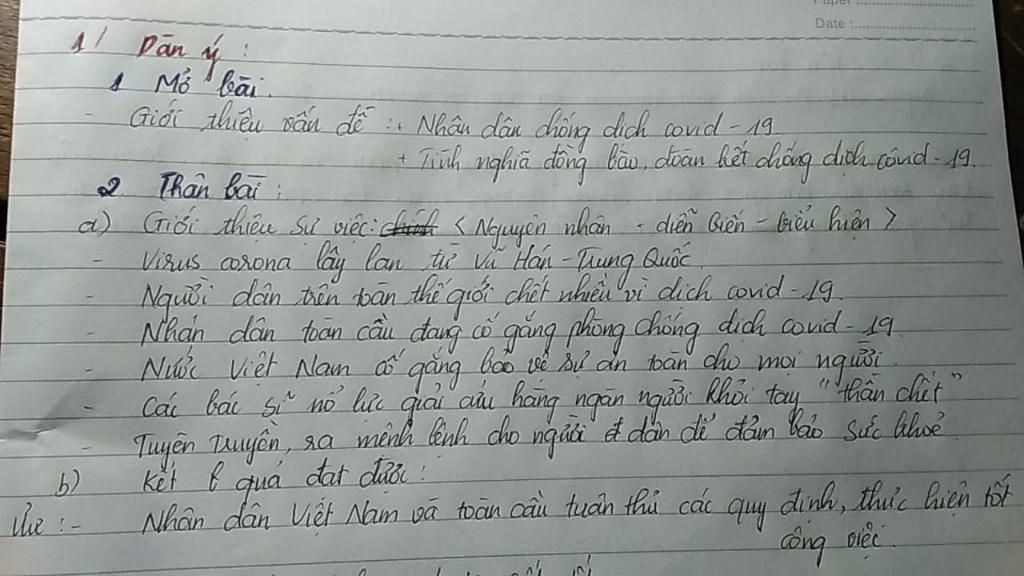 Paper :
Date :
1/ Dàn ý :
1 Mở bài.
- Giới thiệu vấn đề : + Nhân dân chống dịch covid - 19
+ Tình nghĩa đồng bào, đoàn kết chống dịch covid - 19.
2 Thân bài :
a) Giới thiệu sự việc: chính < Nguyên nhân - diễn biến - biểu hiện >
- Virus corona lây lan từ Vũ Hán - Trung Quốc.
- Người dân trên toàn thế giới chết nhiều vì dịch covid - 19.
- Nhân dân toàn cầu đang cố gắng phòng chống dịch covid - 19.
- Nước Việt Nam cố gắng bảo vệ sự an toàn cho mọi người.
- Các bác sĩ nỗ lực giải cứu hàng ngàn người khỏi tay "thần chết"
- Tuyên truyền, ra mệnh lệnh cho người dân để đảm bảo sức khoẻ.
b) Kết quả đạt được :
- Nhân dân Việt Nam và toàn cầu tuân thủ các quy định, thực hiện tốt
công việc.